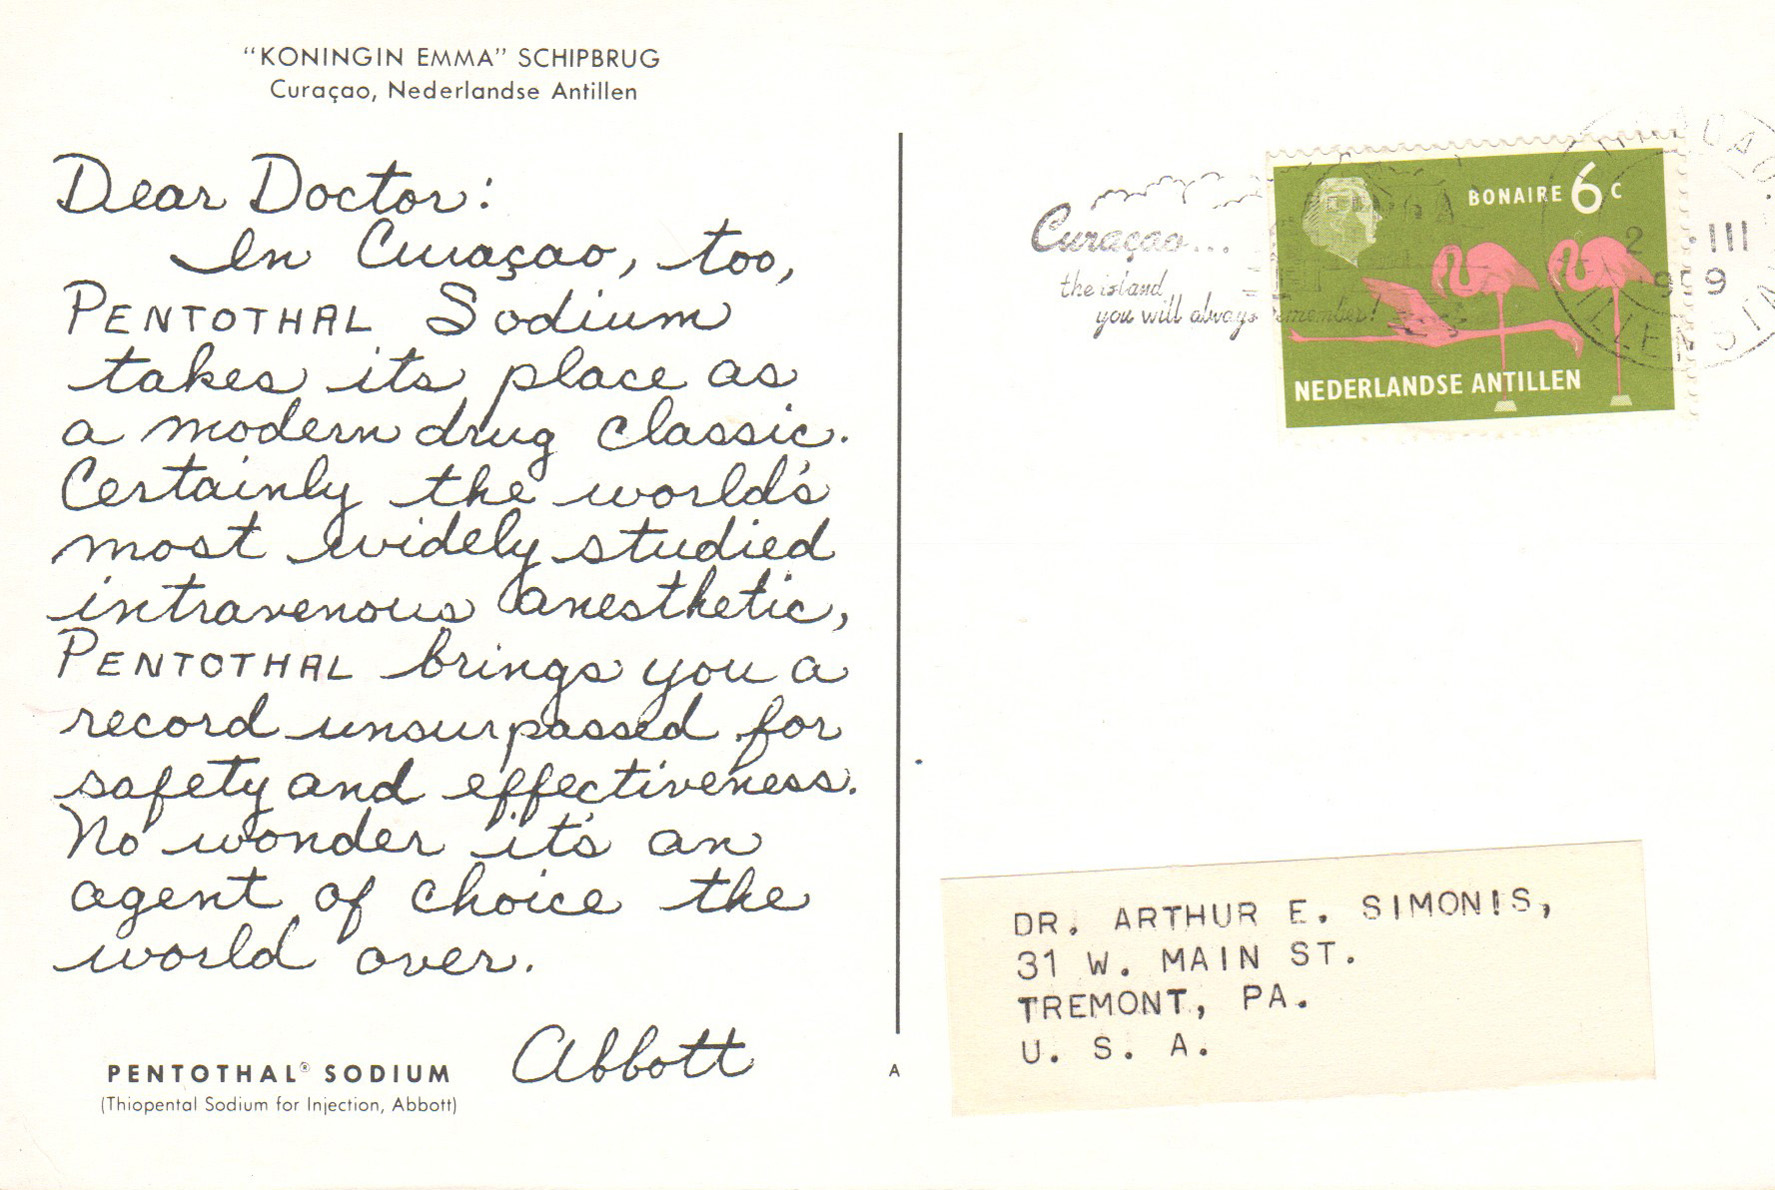 "KONINGIN EMMA" SCHIPBRUG
Curaçao, Nederlandse Antillen
Dear Doctor:
In Curaçao, too,
PENTOTHAL Sodium
takes its place as
a modern drug classic.
Certainly the world's
most widely studied
intravenous anesthetic,
PENTOTHAL brings you a
record unsurpassed for
safety and effectiveness.
No wonder it's an
agent of choice the
world over.
Abbott
PENTOTHAL® SODIUM
(Thiopental Sodium for Injection, Abbott)
A
Curaçao...
the island
you will always remember!
BONAIRE 6 C
NEDERLANDSE ANTILLEN
2 . III
DR. ARTHUR E. SIMONIS,
31 W. MAIN ST.
TREMONT, PA.
U. S. A.